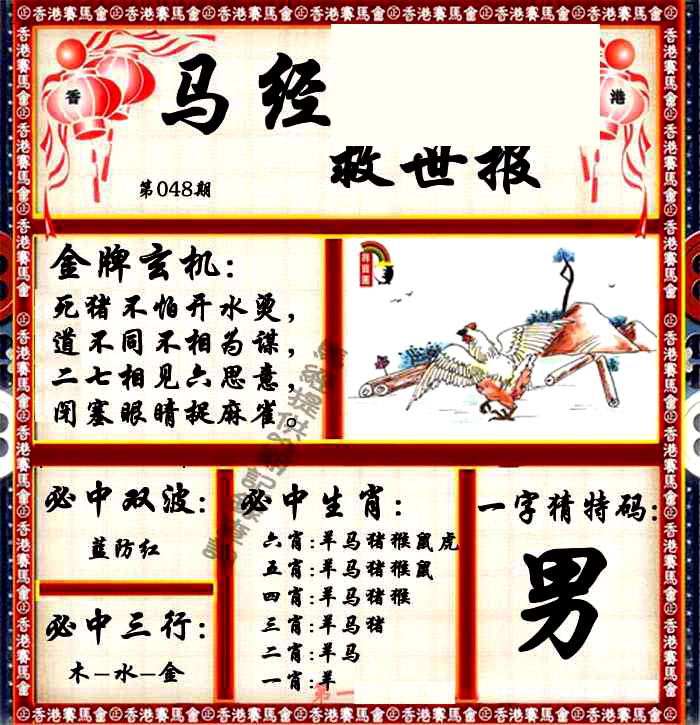 香港賽馬會
香
港
马经
救世报
第048期
金牌玄机：
死猪不怕开水烫，
道不同不相为谋，
二七相见六思意，
闭塞眼睛捉麻雀。
必中双波：
蓝防红
必中三行：
木-水-金
必中生肖：
六肖:羊马猪猴鼠虎
五肖:羊马猪猴鼠
四肖:羊马猪猴
三肖:羊马猪
二肖:羊马
一肖:羊
第一
一字猜特码：
男